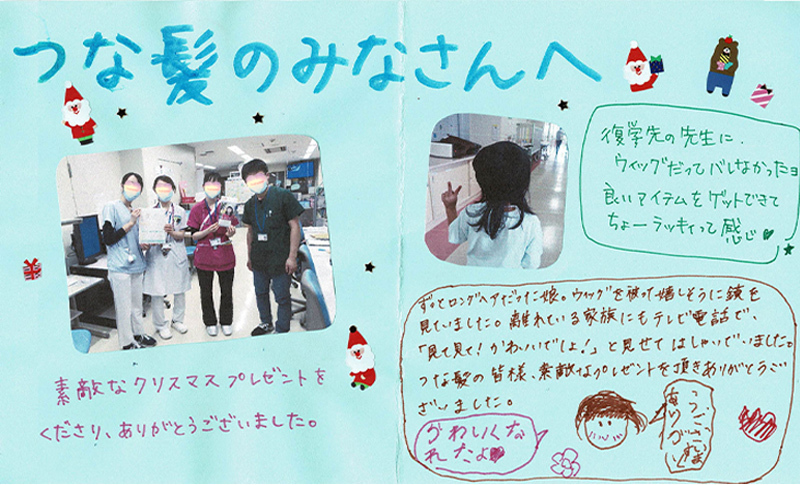 つな髪のみなさんへ
復学先の先生に、
ウィッグだってバレなかったヨ
良いアイテムをゲットできて
ちょーラッキィって感じ♥
素敵なクリスマスプレゼントを
くださり、ありがとうございました。
ずっとロングヘアだった娘。ウィッグを被って嬉しそうに鏡を
見ていました。離れている家族にもテレビ電話で、
「見て見て!かわいいでしょ!」と見せてはしゃいでいました。
つな髪の皆様、素敵なプレゼントを頂きありがとうご
ざいました。
かわいくな
れたよ♥
ありがとう
ございます